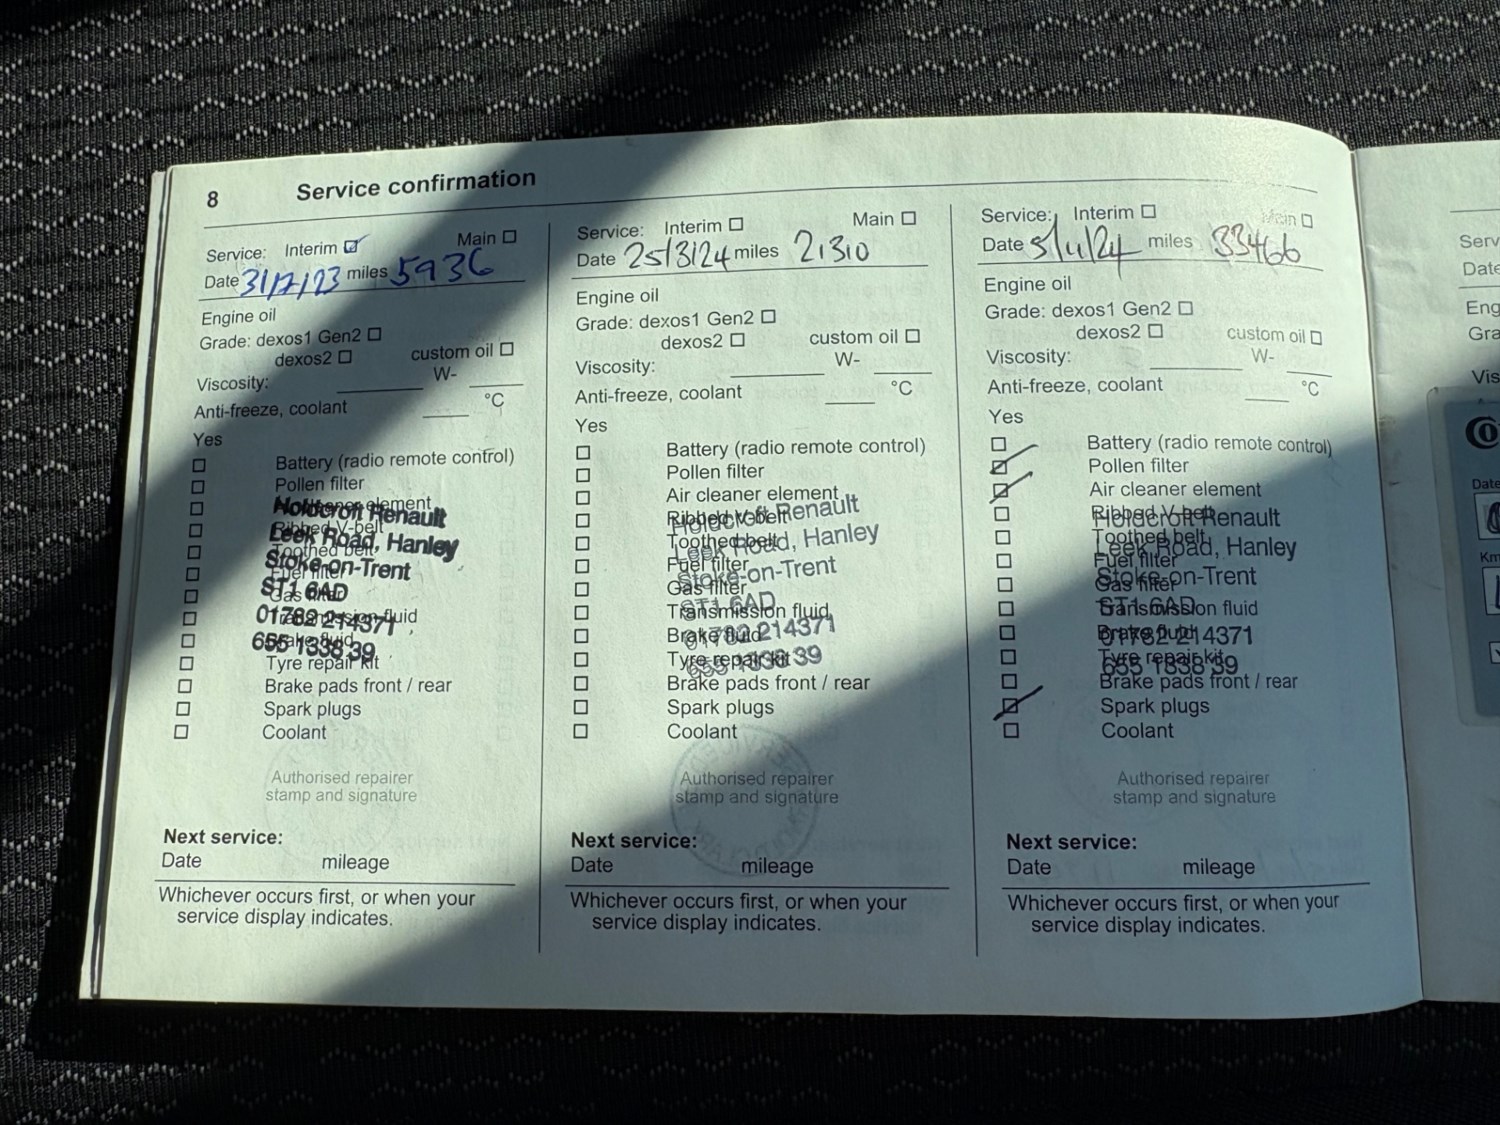 8 Service confirmation
Service: Interim Main
Date 31/7/23 miles 5936
Engine oil
Grade: dexos1 Gen2
dexos2 custom oil
Viscosity: W-
Anti-freeze, coolant °C
Yes
Battery (radio remote control)
Pollen filter
element
Holdcroft Renault
Ribbed V-belt
Leek Road, Hanley
Toothed belt
Stoke-on-Trent
Fuel filter
ST1 6AD
Gas filter
01782 214371
fluid
Brake fluid
655 1338 39
Tyre repair kit
Brake pads front / rear
Spark plugs
Coolant
Authorised repairer
stamp and signature
Next service:
Date mileage
Whichever occurs first, or when your
service display indicates.
Service: Interim Main
Date 25/3/24 miles 21310
Engine oil
Grade: dexos1 Gen2
dexos2 custom oil
Viscosity: W-
Anti-freeze, coolant °C
Yes
Battery (radio remote control)
Pollen filter
Air cleaner element
Holdcroft Renault
Ribbed V-belt
Leek Road, Hanley
Toothed belt
Fuel filter
Stoke-on-Trent
Gas filter
ST1 6AD
Transmission fluid
01782 214371
Brake fluid
655 1338 39
Tyre repair kit
Brake pads front / rear
Spark plugs
Coolant
Authorised repairer
stamp and signature
Next service:
Date mileage
Whichever occurs first, or when your
service display indicates.
Service: Interim Main
Date 5/11/24 miles 33466
Engine oil
Grade: dexos1 Gen2
dexos2 custom oil
Viscosity: W-
Anti-freeze, coolant °C
Yes
Battery (radio remote control)
Pollen filter
Air cleaner element
Ribbed V-belt
Holdcroft Renault
Toothed belt
Leek Road, Hanley
Fuel filter
Stoke-on-Trent
Gas filter
ST1 6AD
Transmission fluid
Brake fluid
01782 214371
Tyre repair kit
655 1338 39
Brake pads front / rear
Spark plugs
Coolant
Authorised repairer
stamp and signature
Next service:
Date mileage
Whichever occurs first, or when your
service display indicates.
Date